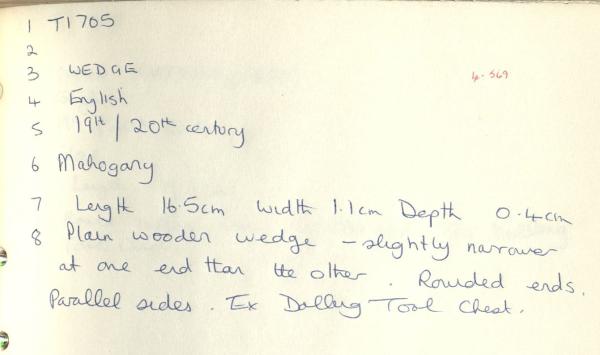 1 T1705
2
3 WEDGE 4.569
4 English
5 19th / 20th century
6 Mahogany
7 Length 16.5cm Width 1.1cm Depth 0.4cm
8 Plain wooden wedge - slightly narrower
at one end than the other. Rounded ends.
Parallel sides. Ex Tool Chest.